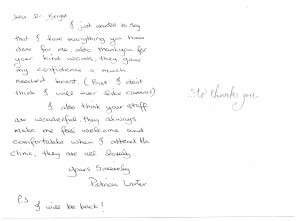 Dear Dr Bright
I just wanted to say
that I love everything you have
done for me, also thankyou for
your kind words, they gave
my confidence a much
needed boost. (But I don't
think I will ever like cameras)
I also think your staff
are wonderful, they always
make me feel welcome and
comfortable when I attend the
Clinic, they are all lovely.
Yours Sincerely
Patricia
P.S
I will be back!
thank you